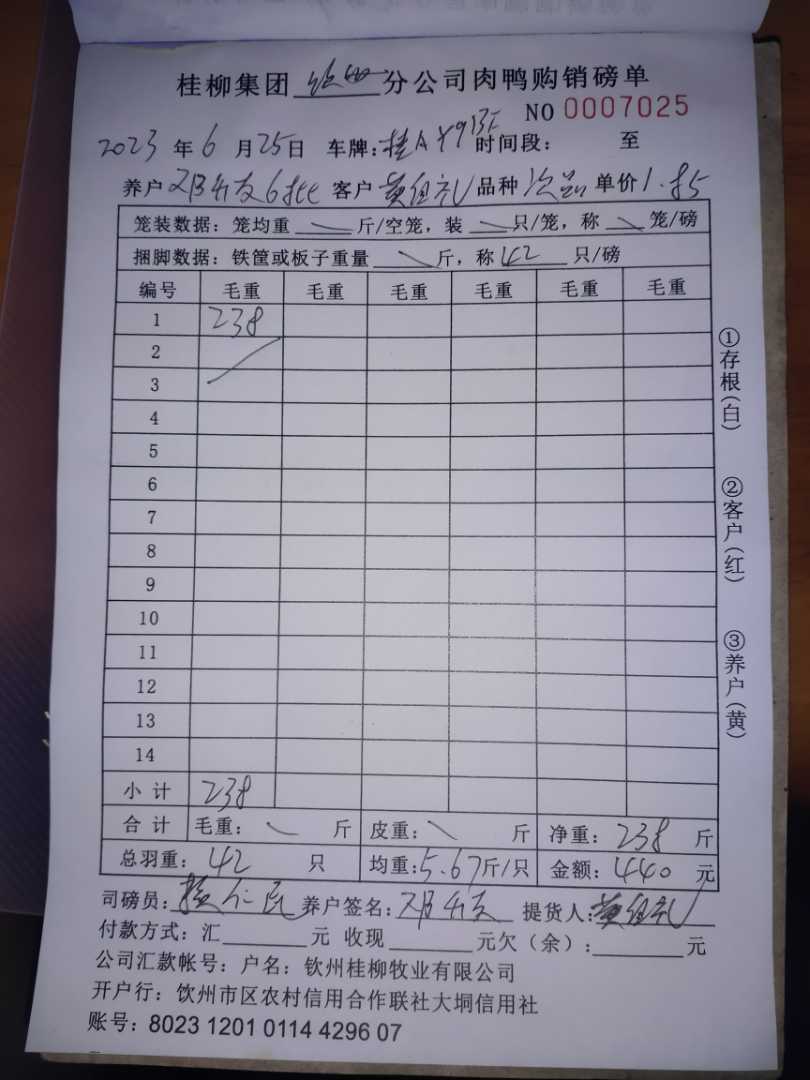 桂柳集团 分公司肉鸭购销磅单
NO 0007025
2023 年 6 月 25 日 车牌: 桂A 时间段: 至
养户 6批 客户 黄组礼 品种 次品 单价 1.85
笼装数据: 笼均重 斤/空笼, 装 只/笼, 称 笼/磅
捆脚数据: 铁筐或板子重量 斤, 称 42 只/磅
编号 毛重 毛重 毛重 毛重 毛重 毛重
1 238
2
3
4
5
6
7
8
9
10
11
12
13
14
小计 238
合计 毛重: 斤 皮重: 斤 净重: 238 斤
总羽重: 42 只 均重: 5.67 斤/只 金额: 440 元
司磅员: 养户签名: 提货人: 黄组礼
付款方式: 汇 元 收现 元欠(余): 元
公司汇款帐号: 户名: 钦州桂柳牧业有限公司
开户行: 饮州市区农村信用合作联社大垌信用社
账号: 8023 1201 0114 4296 07
①存根(白)
②客户(红)
③养户(黄)